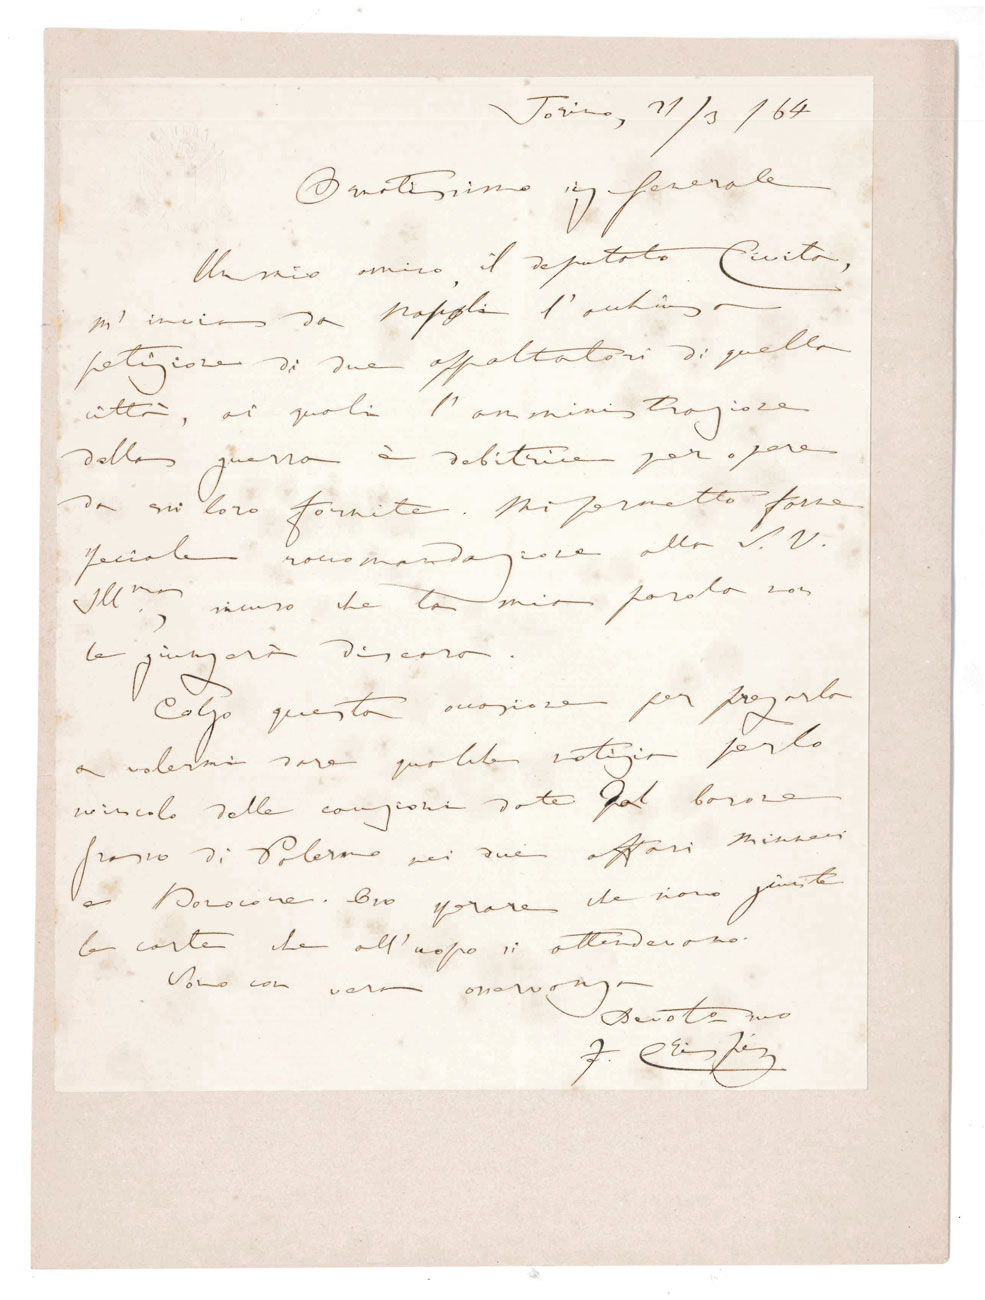 Torino, 31/3/64
Onoratissimo Sig. Generale
Un mio amico, il deputato Civita,
m'invia da Napoli l'acchiusa
petizione di due appaltatori di quella
città, ai quali l'amministrazione
della guerra è debitrice per opere
da essi loro fornite. Mi permetto farne
speciale raccomandazione alla S. V.
Ill.ma, sicuro che la mia parola non
le giungerà discara.
Colgo questa occasione per pregarla
a volermi dare qualche notizia per lo
svincolo delle cauzioni date dal barone
di Palermo nei due affari
e . Oso sperare che siano giunte
le carte che all'uopo si attendevano.
Sono con vera osservanza
Devoto suo
F. Crispi